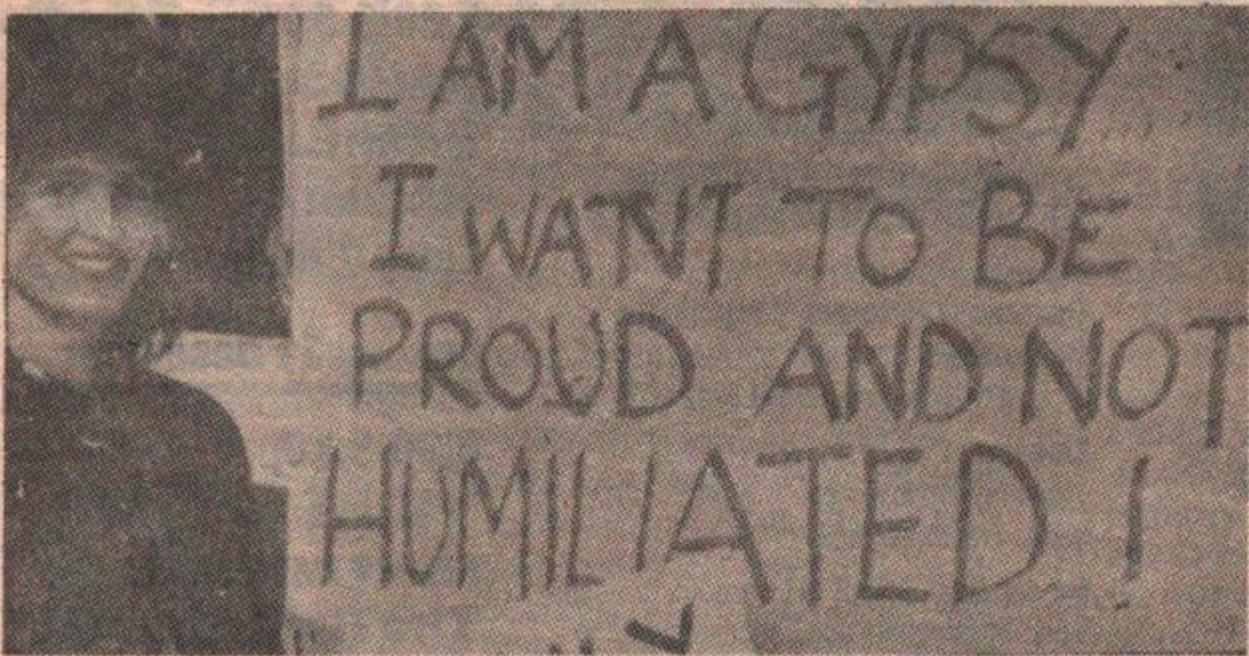 I AM A GYPSY
I WANT TO BE
PROUD AND NOT
HUMILIATED !